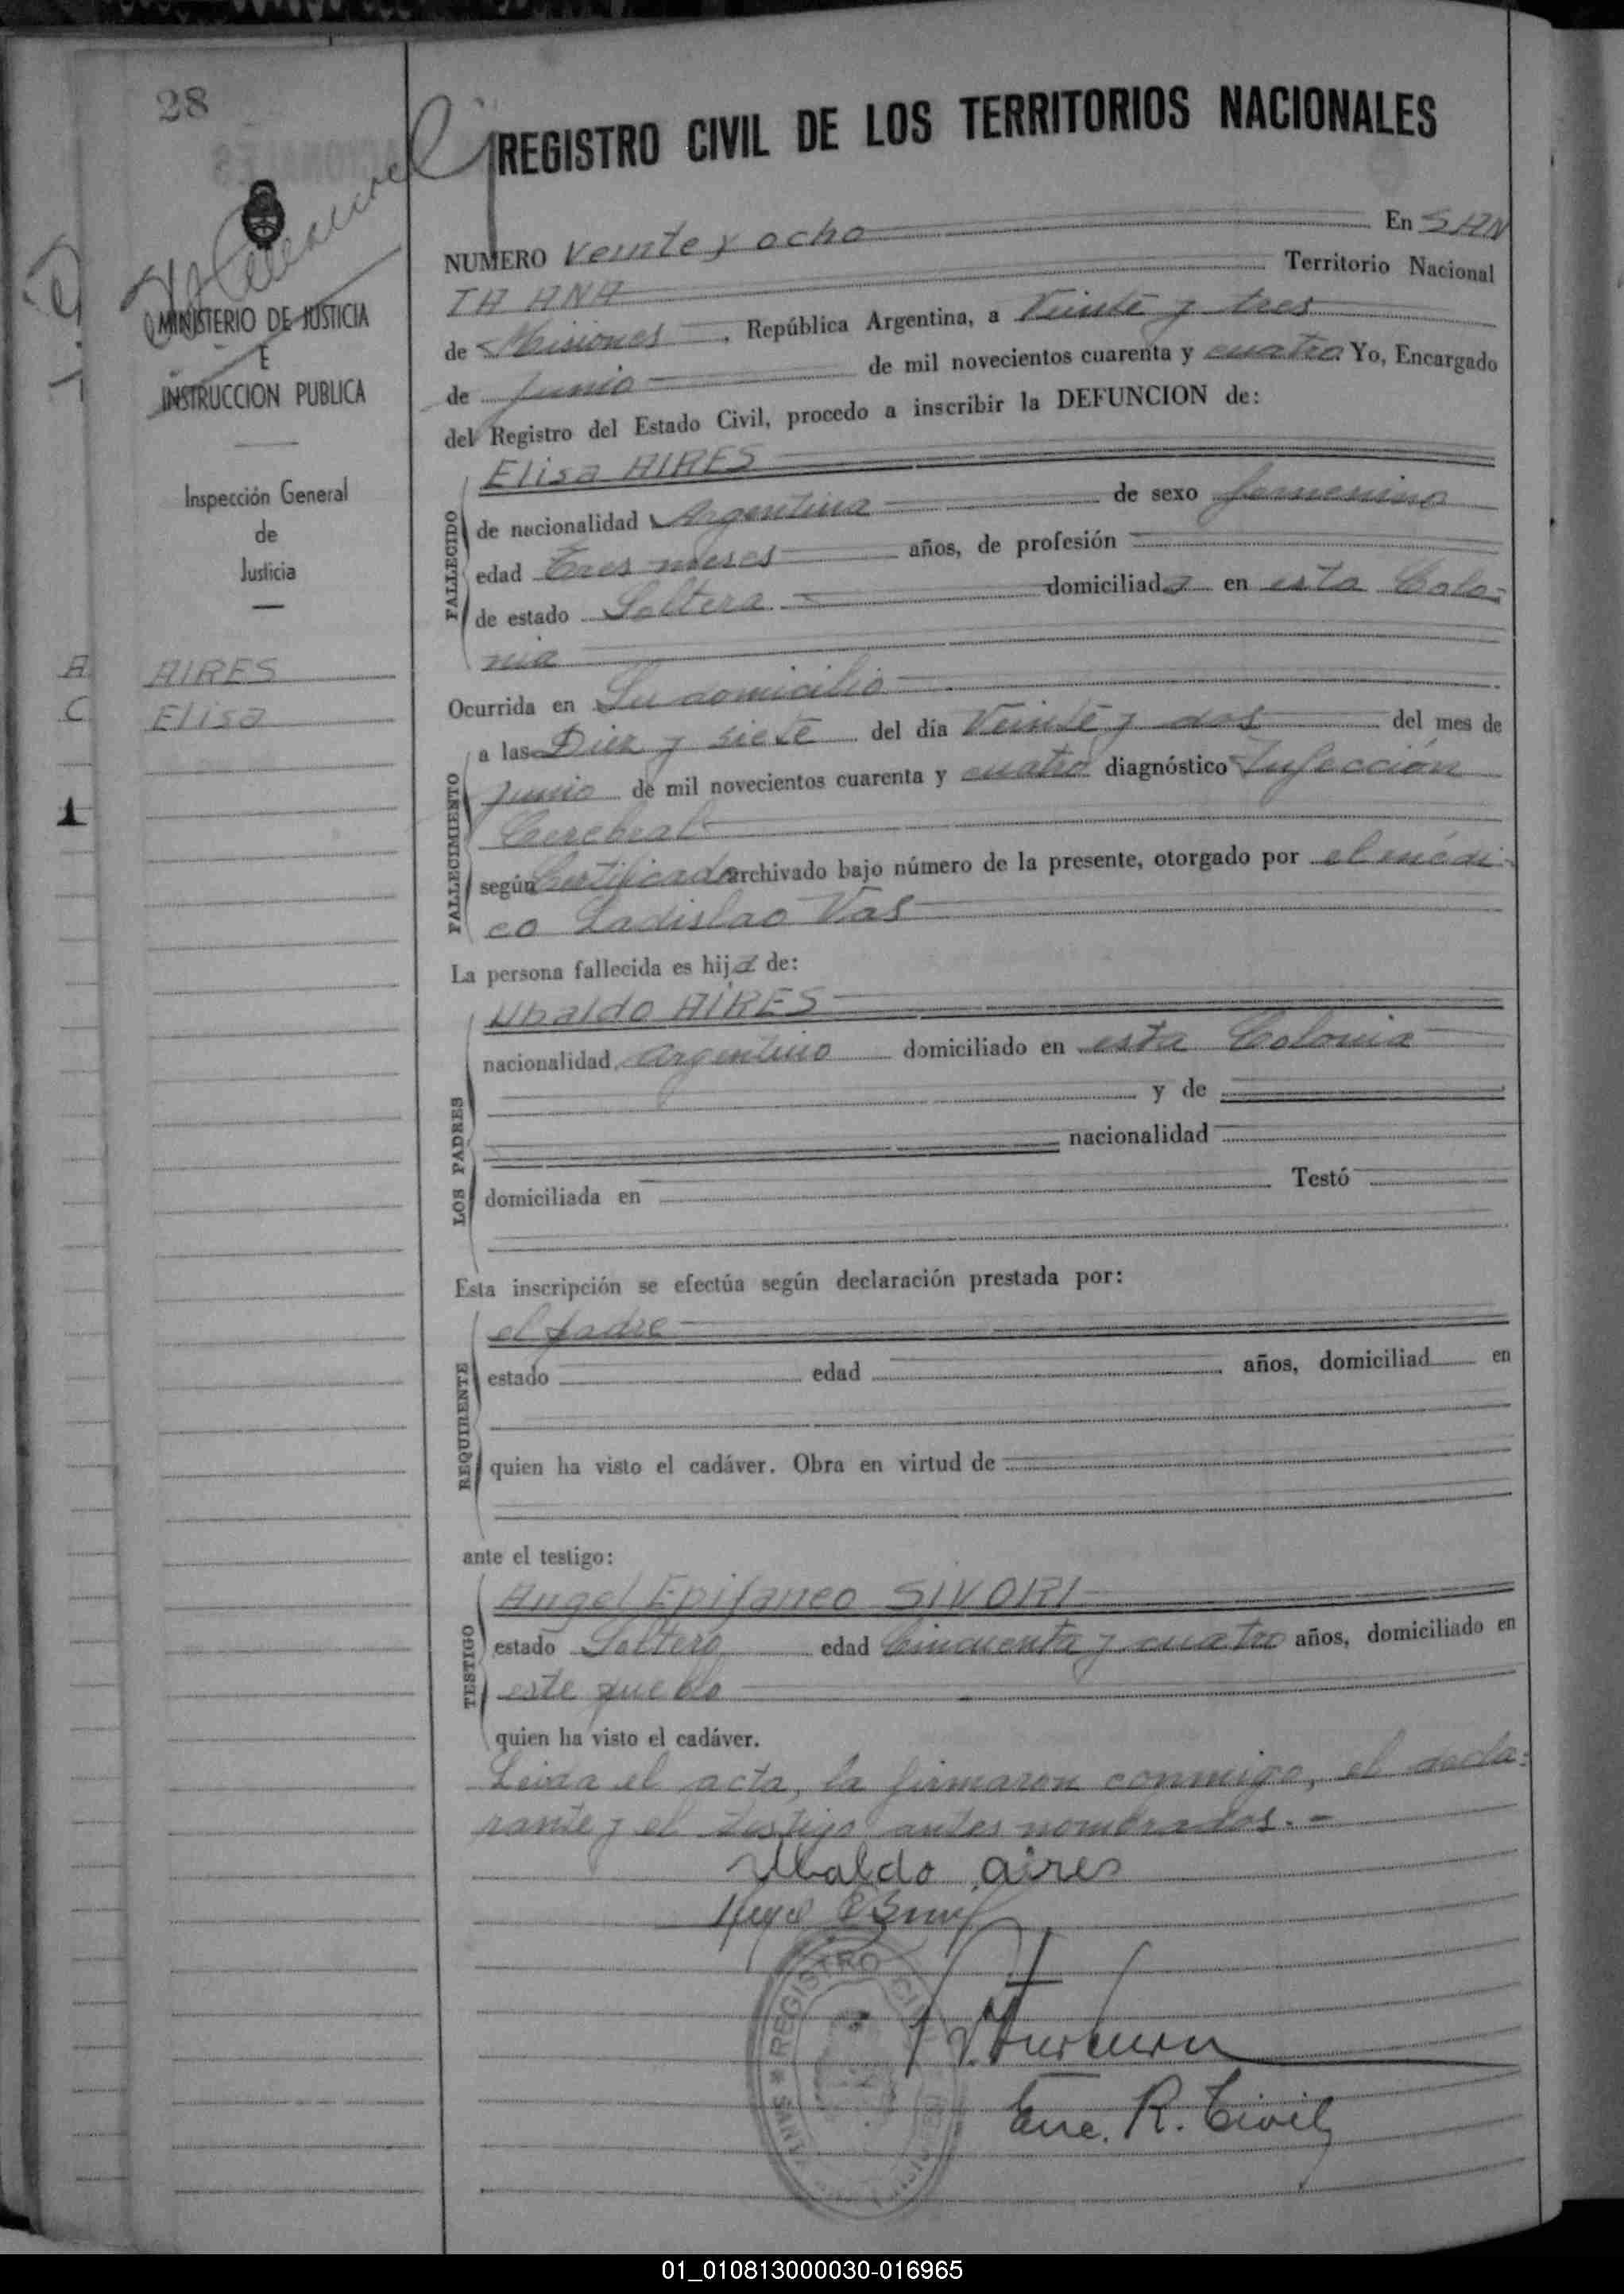 28
REGISTRO CIVIL DE LOS TERRITORIOS NACIONALES
MINISTERIO DE JUSTICIA
E
INSTRUCCION PUBLICA
Inspección General
de
Justicia
A AIRES
C Elisa
1
NUMERO Veinte y ocho En SAN
TA ANA Territorio Nacional
de Misiones, República Argentina, a Veinte y tres
de Junio de mil novecientos cuarenta y cuatro Yo, Encargado
del Registro del Estado Civil, procedo a inscribir la DEFUNCION de:
FALLECIDO
Elisa AIRES
de nacionalidad Argentina de sexo femenino
edad Tres meses años, de profesión
de estado Soltera domiciliada en esta Colo-
nia
Ocurrida en Su domicilio
FALLECIMIENTO
a las Diez y siete del día Veinte y dos del mes de
Junio de mil novecientos cuarenta y cuatro diagnóstico Infección
Cerebral
según Certificado archivado bajo número de la presente, otorgado por el médi-
co Ladislao Vas
La persona fallecida es hija de:
LOS PADRES
Ubaldo AIRES
nacionalidad, argentino domiciliado en esta Colonia
y de
nacionalidad
domiciliada en Testó
Esta inscripción se efectúa según declaración prestada por:
REQUIRENTE
el padre
estado edad años, domiciliad en
quien ha visto el cadáver. Obra en virtud de
ante el testigo:
TESTIGO
Angel Epifaneo SIVORI
estado Soltero edad Cincuenta y cuatro años, domiciliado en
este pueblo
quien ha visto el cadáver.
Leida el acta, la firmaron conmigo, el decla-
rante y el testigo antes nombrados.-
Ubaldo aires
REGISTRO CIVIL
Enc. R. Civil
01_010813000030-016965